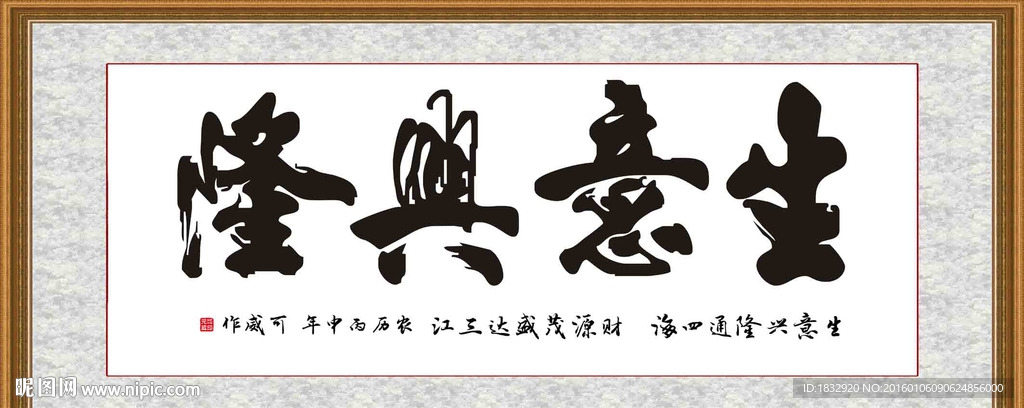 生意興隆
生意兴隆通四海 财源茂盛达三江 农历丙申年 可威作
昵图网 www.nipic.com
ID:1832920 NO:20160106090624856000